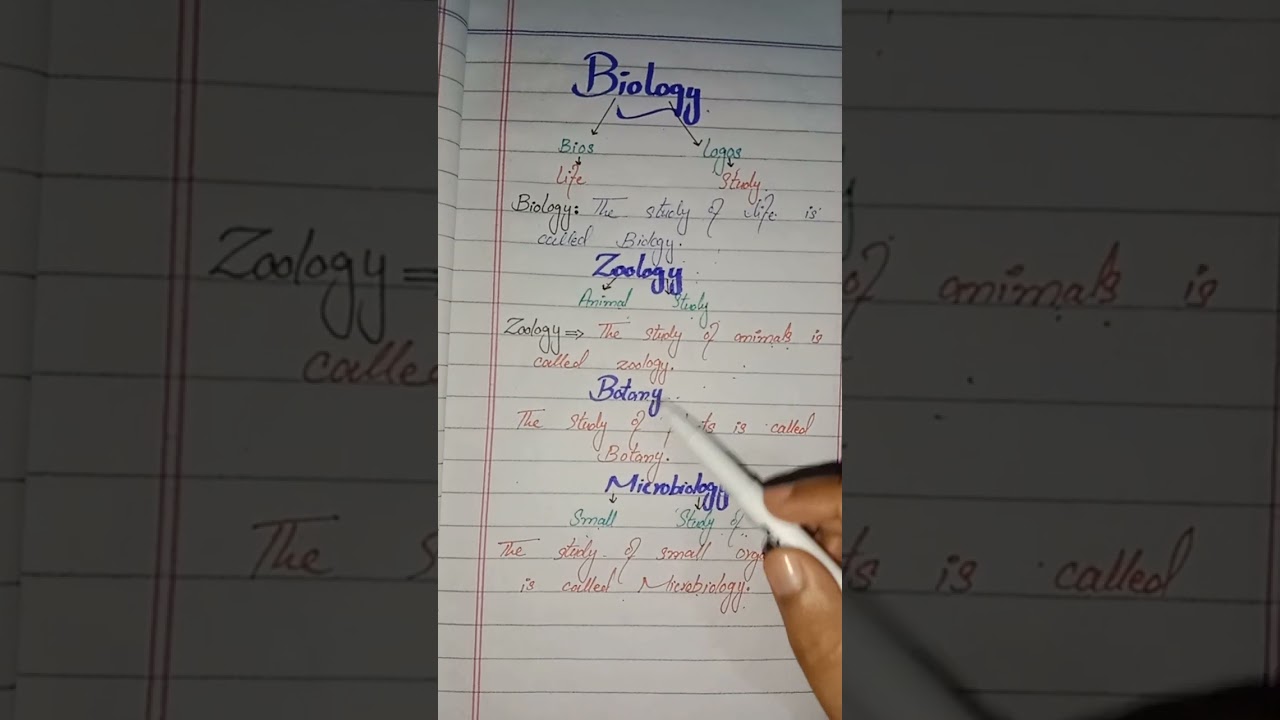 Biology
Bios Logos
Life Study
Biology: The study of life is
called Biology.
Zoology
Animal Study
Zoology ⇒ The study of animals is
called zoology.
Botany
The study of is called
Botany.
Microbiology
Small Study of
The study of small
is called Microbiology.